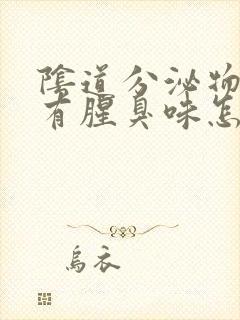 陰道分泌物
有腥臭味怎
烏衣